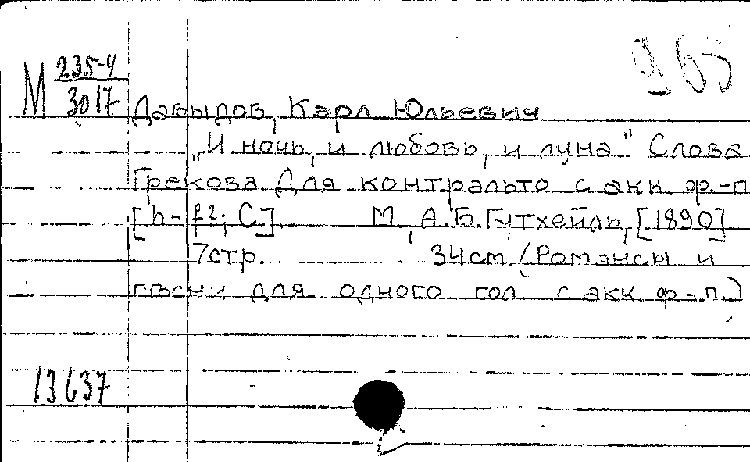 965
М 235-4
3017
Давыдов, Карл Юльевич
"И ночь, и любовь, и луна" Слова
Грекова Для контральто с акк ф-п
[h-f2; C] М, А.Б.Гутхейль, [1890]
7стр. 34см (Романсы и
песни для одного гол с акк ф-п.)
13637